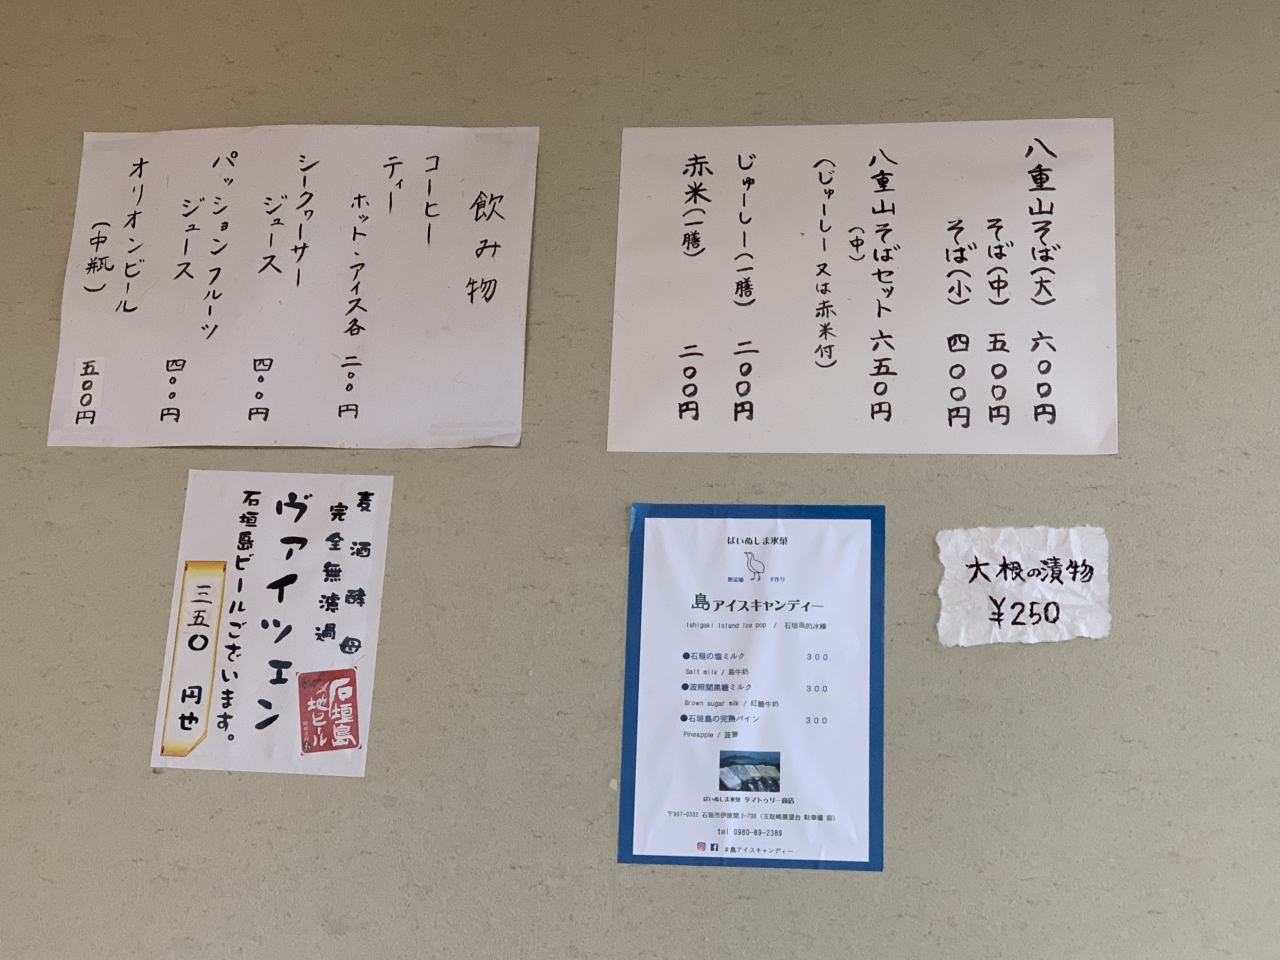 八重山そば(大) 六〇〇円
そば(中) 五〇〇円
そば(小) 四〇〇円
八重山そばセット 六五〇円
(中)
(じゅーしー又は赤米付)
じゅーしー(一膳) 二〇〇円
赤米(一膳) 二〇〇円
飲み物
コーヒー
ティー
ホット・アイス各 二〇〇円
シークヮーサー
ジュース 四〇〇円
パッションフルーツ
ジュース 四〇〇円
オリオンビール
(中瓶) 五〇〇円
麦酒酵母
完全無濾過
ヴァイツェン
石垣島ビールございます。
三五〇円也
石垣島
地ビール
ぱいぬしま氷菓
無添加 手作り
島アイスキャンディー
Ishigaki island ice pop / 石垣島的冰棒
●石垣の塩ミルク 300
Salt milk / 盐牛奶
●波照間黒糖ミルク 300
Brown sugar milk / 红糖牛奶
●石垣島の完熟パイン 300
Pineapple / 菠萝
ぱいぬしま氷菓 タマトゥリー商店
〒907-0332 石垣市伊原間2-738 (玉取崎展望台 駐車場 前)
tel 0980-89-2389
#島アイスキャンディー
大根の漬物
¥250